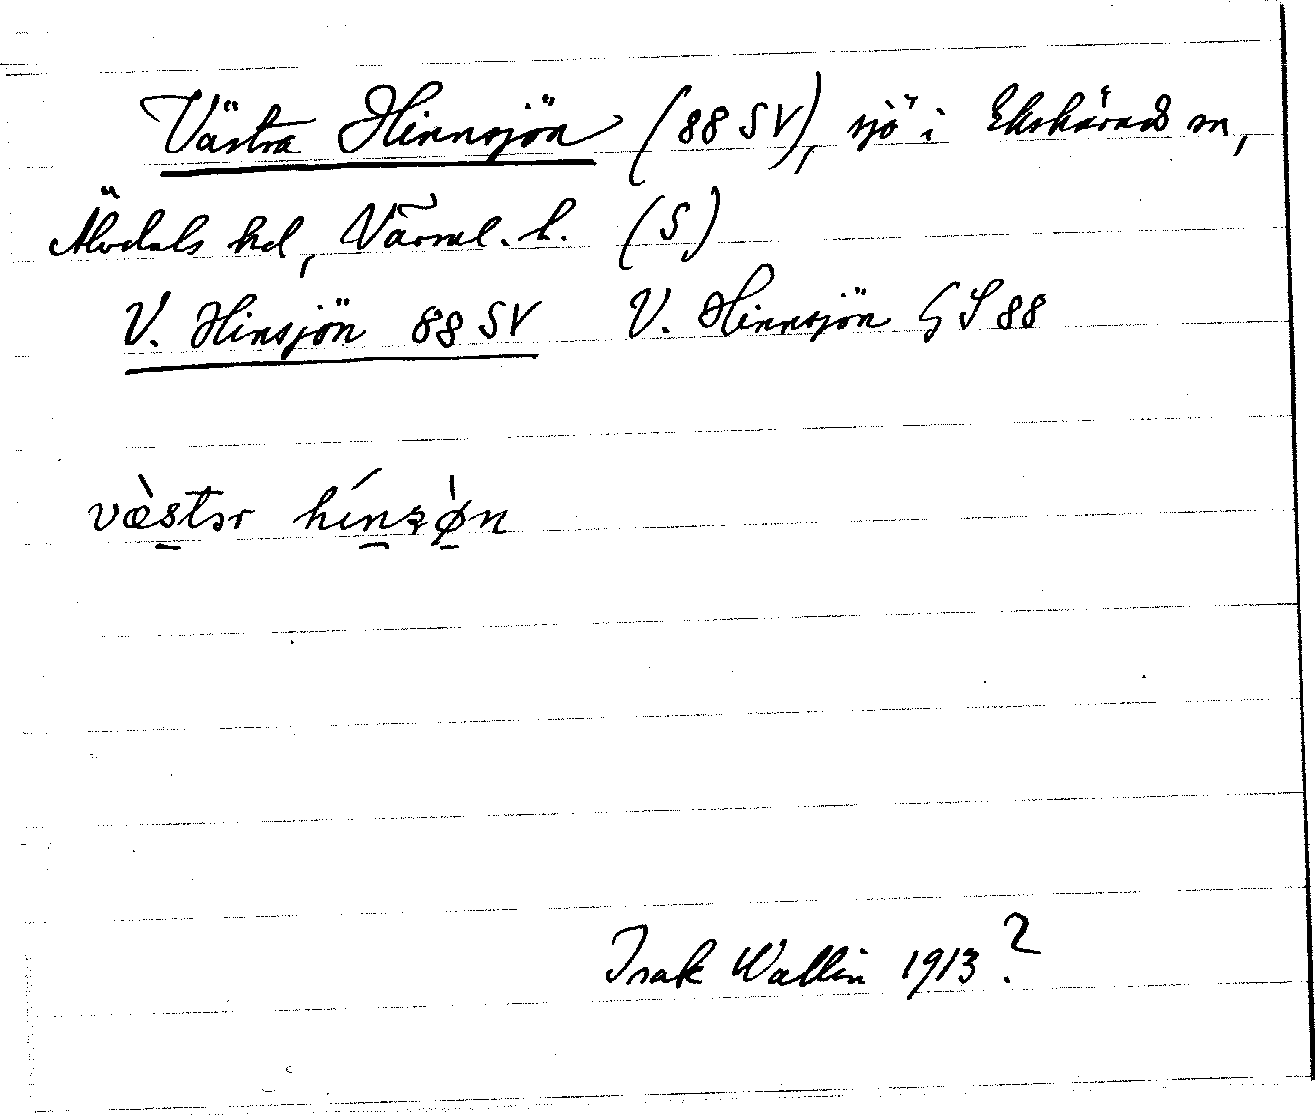 Västra Hinnsjön (88 SV), sjö i Ekshärads sn,
Älvdals hd, Värml. l. (S)
V. Hinsjön 88 SV V. Hinnsjön GS 88
væ̀stər hínzø̀n
Isak Wallin 1913?